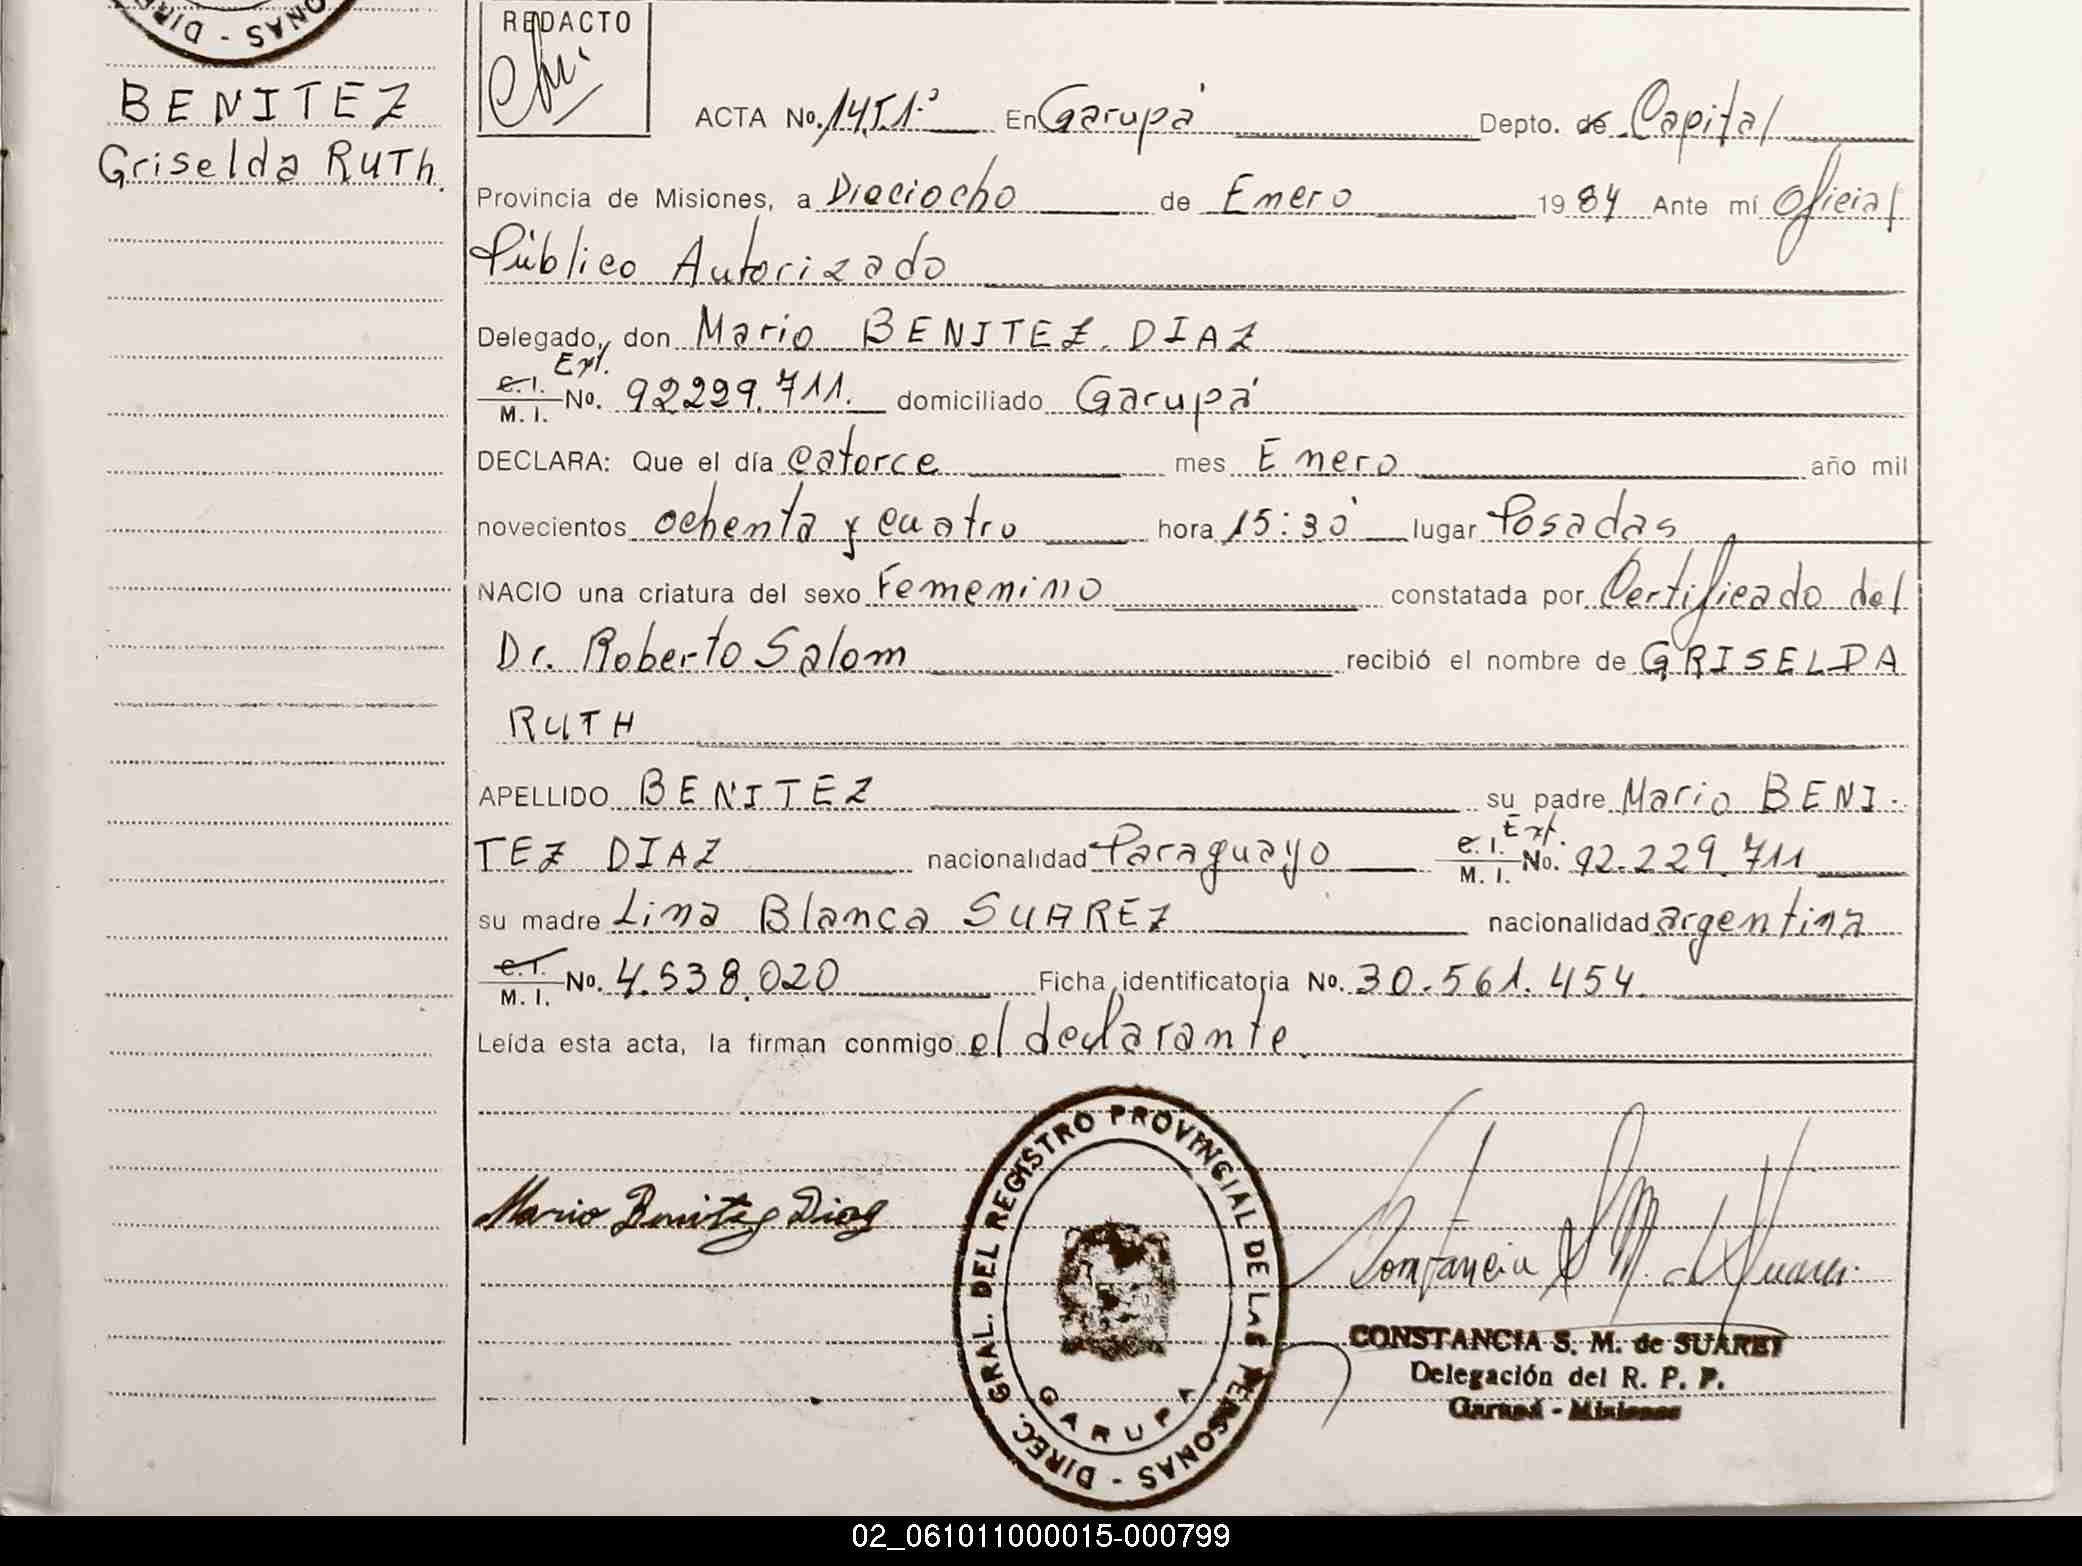 DIREC
ONAS
BENITEZ
Griselda RUTh.
REDACTO
ACTA No. 14 T1º En Garupá Depto. de Capital
Provincia de Misiones, a Dieciocho de Enero 1984 Ante mí Oficial
Público Autorizado
Delegado, don Mario BENITEZ DIAZ
Ext.
C. I. M. I. No. 92229.711. domiciliado Garupá
DECLARA: Que el día Catorce mes Enero año mil
novecientos ochenta y cuatro hora 15:30 lugar Posadas
NACIO una criatura del sexo Femenino constatada por Certificado del
Dr. Roberto Salom recibió el nombre de GRISELDA
RUTH
APELLIDO BENITEZ su padre Mario BENI-
TEZ DIAZ nacionalidad Paraguayo C. I. Ext. M. I. No. 92.229.711
su madre Lina Blanca SUAREZ nacionalidad argentina
C. I. M. I. No. 4.538.020 Ficha identificatoria No. 30.561.454
Leída esta acta, la firman conmigo el declarante.
Mario Benitez Diaz
DIREC. GRAL. DEL REGISTRO PROVINCIAL DE LAS PERSONAS -
GARUPA
Constancia S M. de Suarez
CONSTANCIA S. M. de SUAREZ
Delegación del R. P. P.
Garupá - Misiones
02_061011000015-000799